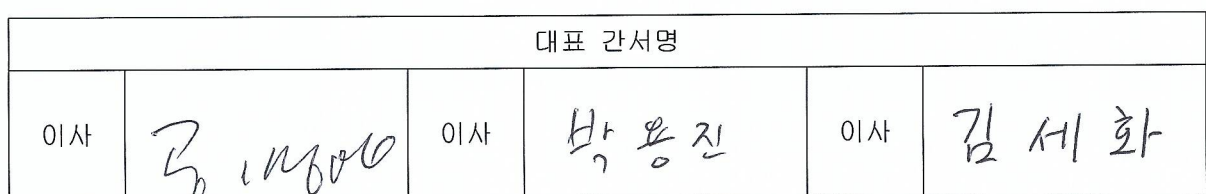 대표 간서명
이사 이사 박용진 이사 김세화